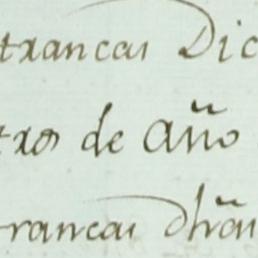 trancas Dic
tros de año
trancas dhas